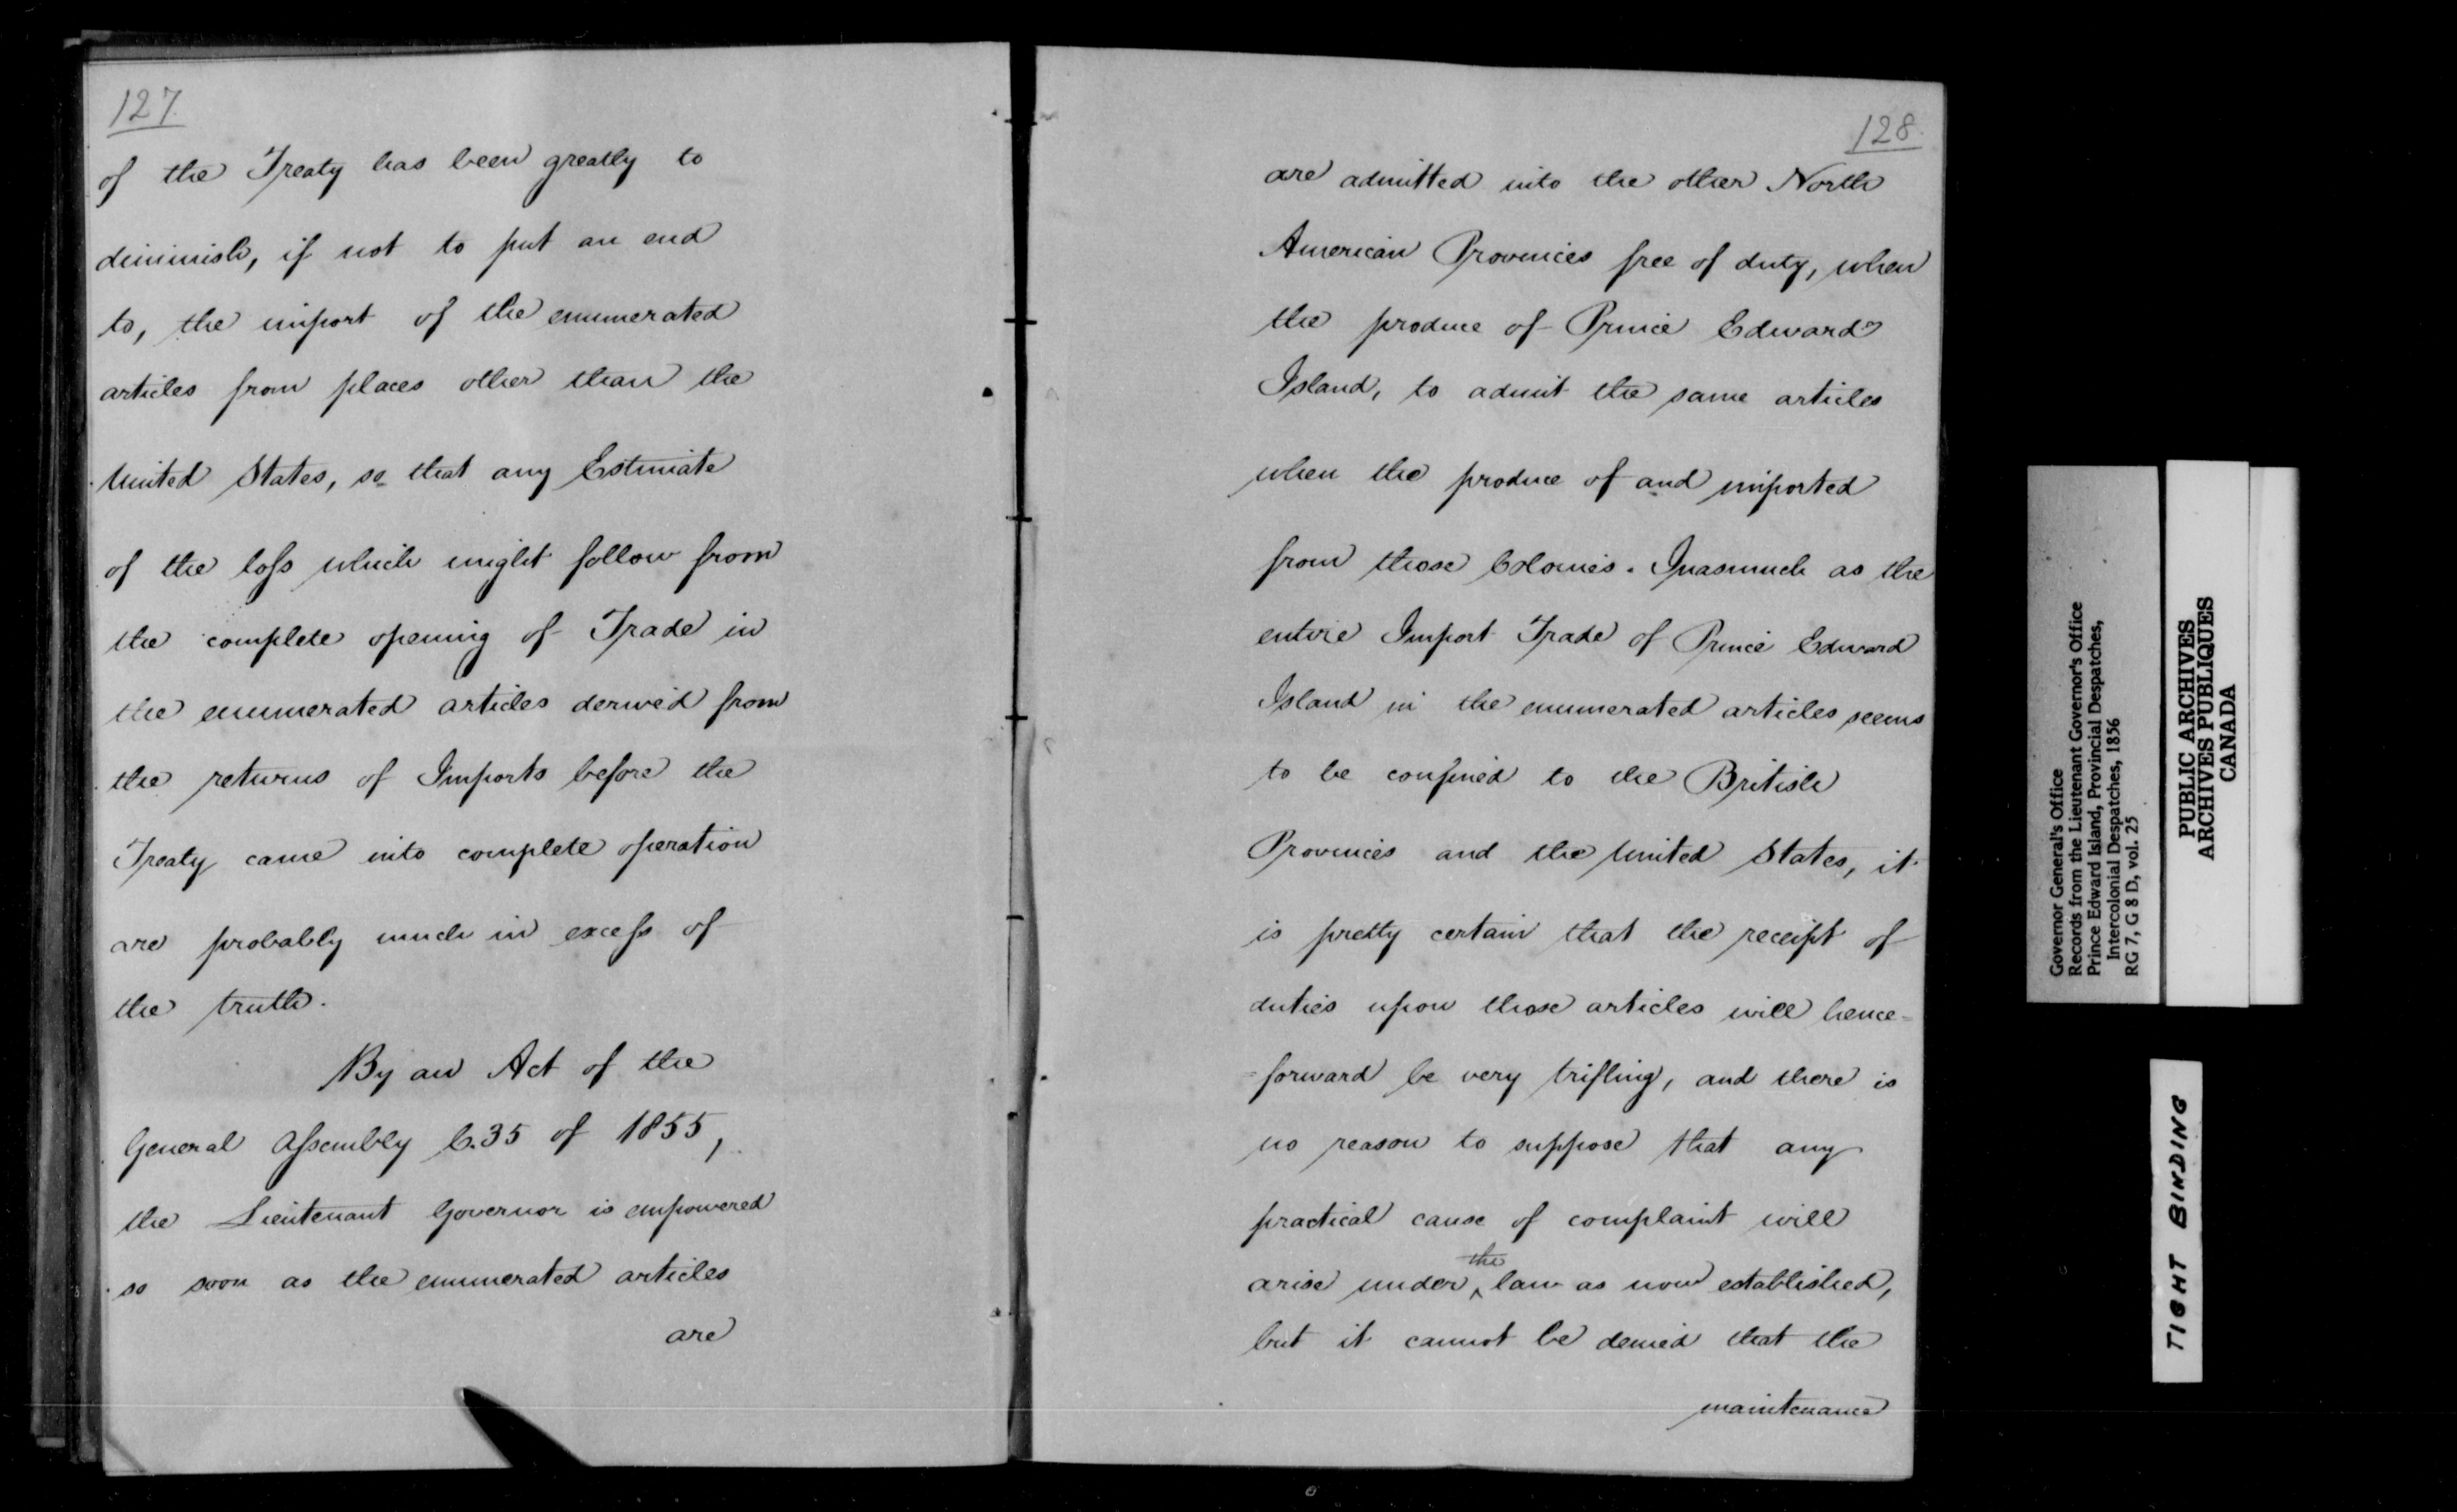 127.
of the Treaty has been greatly to
diminish, if not to put an end
to, the import of the enumerated
articles from places other than the
United States, so that any Estimate
of the loss which might follow from
the complete opening of Trade in
the enumerated articles derived from
the returns of Imports before the
Treaty came into complete operation
are probably much in excess of
the truth.
By an Act of the
General Assembly C.35 of 1855,
the Lieutenant Governor is empowered
so soon as the enumerated articles
are
128.
are admitted into the other North
American Provinces free of duty, when
the produce of Prince Edward
Island, to admit the same articles
when the produce of and imported
from those Colonies. Inasmuch as the
entire Import Trade of Prince Edward
Island in the enumerated articles seems
to be confined to the British
Provinces and the United States, it
is pretty certain that the receipt of
duties upon those articles will hence=
=forward be very trifling, and there is
no reason to suppose that any
practical cause of complaint will
arise under the law as now established,
but it cannot be denied that the
maintenance
Governor General's Office
Records from the Lieutenant Governor's Office
Prince Edward Island, Provincial Despatches,
Intercolonial Despatches, 1856
RG 7, G 8 D, vol. 25
PUBLIC ARCHIVES
ARCHIVES PUBLIQUES
CANADA
TIGHT BINDING